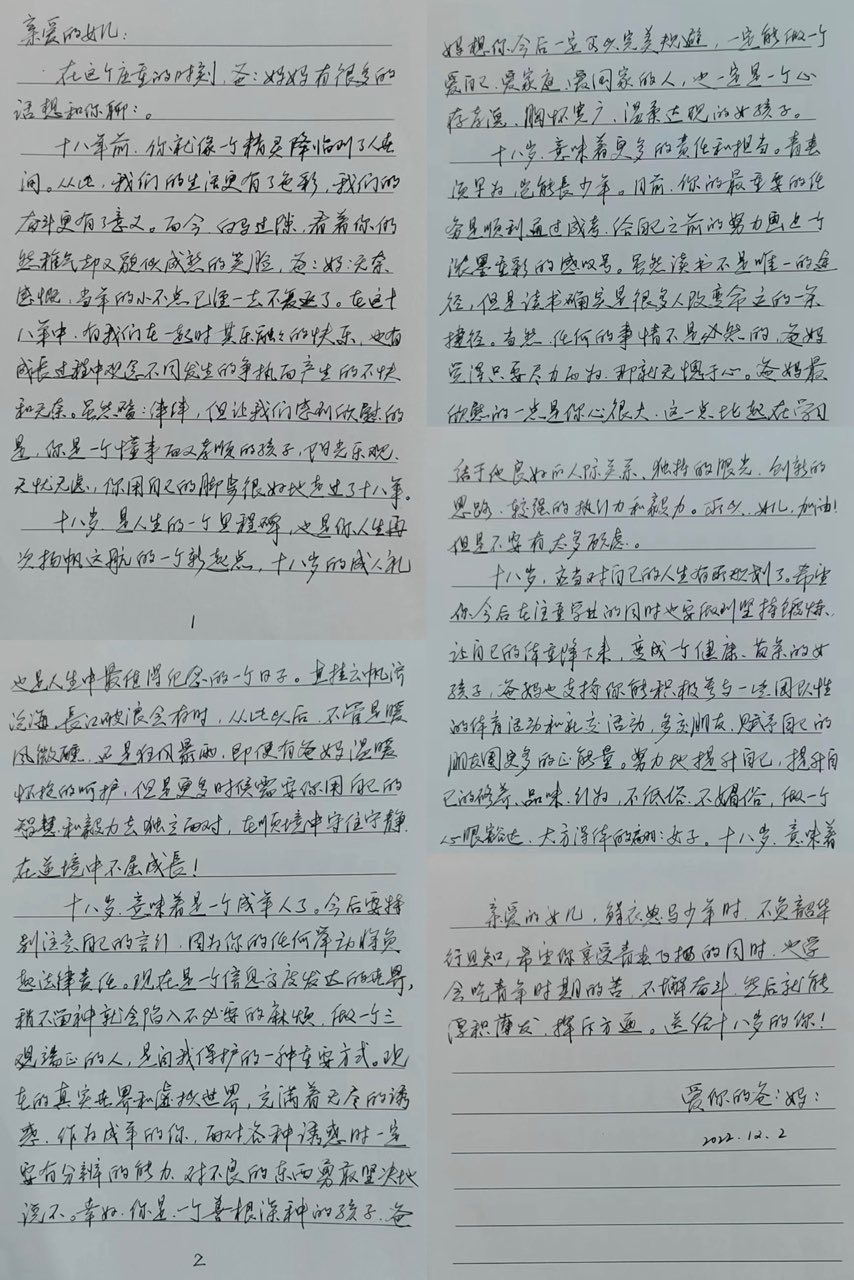 亲爱的女儿：
在这个庄重的时刻，爸：妈妈有很多的
话想和你聊：。
十八年前，你就像一个精灵降临到了人世
间。从此，我们的生活更有了色彩，我们的
奋斗更有了意义。而今，白马过隙，看着你仍
然稚气却又貌似成熟的笑脸，爸：妈：无奈
感慨，当年的小不点已经一去不复返了。在这十
八年中，有我们在一起时其乐融融的快乐，也有
成长过程中观念不同发生的争执而产生的不快
和无奈。虽然磕：绊绊，但让我们特别欣慰的
是，你是一个懂事而又孝顺的孩子，阳光乐观、
无忧无虑，你用自己的脚步很好地走过了十八年。
十八岁，是人生的一个里程碑，也是你人生再
次扬帆远航的一个新起点，十八岁的成人礼
1
也是人生中最值得纪念的一个日子。直挂云帆济
沧海，长江破浪会有时，从此以后，不管是暖
风微醺，还是狂风暴雨，即便有爸妈温暖
怀抱的呵护，但是更多时候需要你用自己的
智慧和毅力去独立面对，在顺境中守住宁静，
在逆境中不屈成长！
十八岁，意味着是一个成年人了。今后要特
别注意自己的言行，因为你的任何举动将负
起法律责任。现在是一个信息高度发达的世界，
稍不留神就会陷入不必要的麻烦，做一个三
观端正的人，是自我保护的一种重要方式。现
在的真实世界和虚拟世界，充满着无尽的诱
惑，作为成年的你，面对各种诱惑时一定
要有分辨的能力，对不良的东西勇敢坚决地
说不。幸好，你是一个善根深种的孩子，爸
2
妈想你今后一定可以完美规避，一定能做一个
爱自己、爱家庭、爱国家的人，也一定是一个心
存善念、胸怀宽广、温柔达观的女孩子。
十八岁，意味着更多的责任和担当。青春
须早为，岂能长少年。目前，你的最重要的任
务是顺利通过成考，给自己之前的努力画上个
浓墨重彩的感叹号。虽然读书不是唯一的途
径，但是读书确实是很多人改变命运的一条
捷径。当然，任何的事情不是必然的，爸妈
觉得只要尽力而为，那就无愧于心。爸妈最
欣慰的一点是你心很大，这一点比起在学习
结于他良好的人际关系、独特的眼光、创新的
思路、较强的执行力和毅力。所以，女儿，加油！
但是不要有太多顾虑。
十八岁，应当对自己的人生有所规划了。希望
你今后在注重学业的同时也要做到坚持锻炼，
让自己的体重降下来，变成一个健康、苗条的女
孩子，爸妈也支持你能积极参与一些团队性
的体育活动和社交活动，多交朋友，赋予自己的
朋友圈更多的正能量。努力地提升自己，提升自
己的修养、品味、行为，不低俗、不媚俗，做一个
心眼豁达、大方得体的女子。十八岁，意味着
亲爱的女儿，鲜衣怒马少年时，不负韶华
行且知，希望你享受青春飞扬的同时，也学
会吃青年时期的苦，不懈奋斗，然后就能
厚积薄发，挥斥方遒。送给十八岁的你！
爱你的爸：妈：
2022.12.2